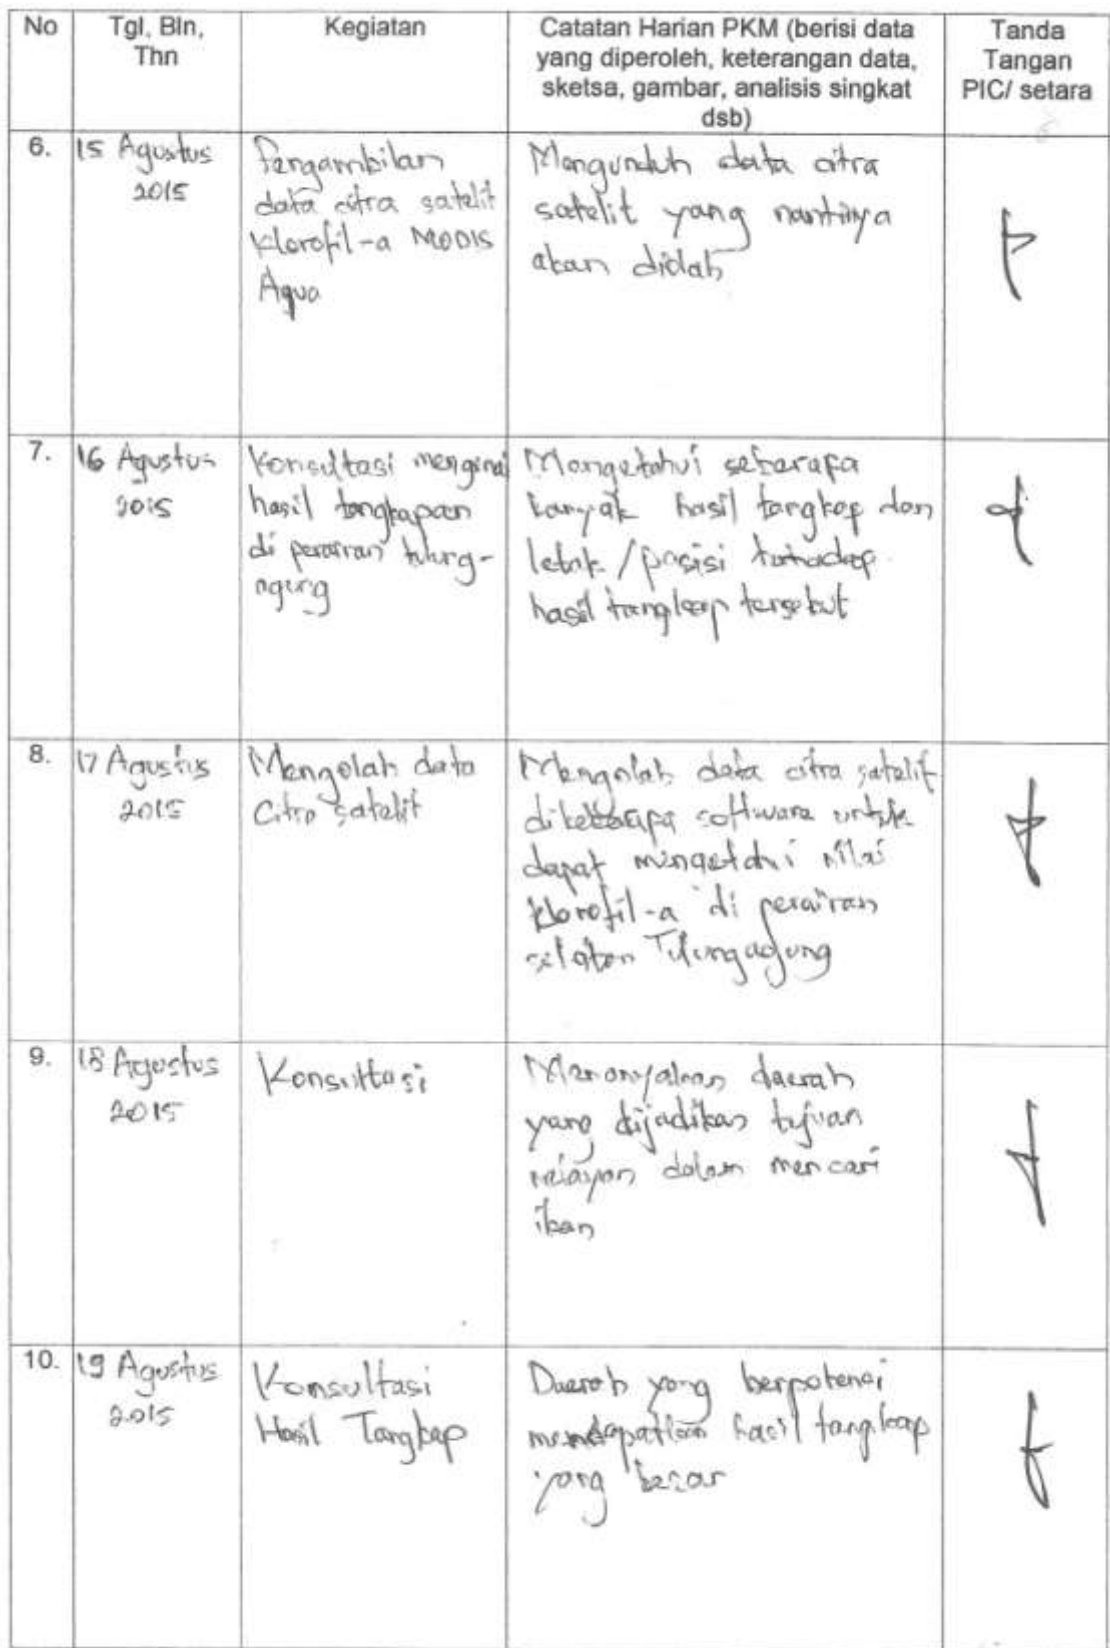 No
Tgl, Bln,
Thn
Kegiatan
Catatan Harian PKM (berisi data
yang diperoleh, keterangan data,
sketsa, gambar, analisis singkat
dsb)
Tanda
Tangan
PIC/ setara
6.
15 Agustus
2015
Pengambilan
data citra satelit
klorofil-a MODIS
Aqua
Mengunduh data citra
satelit yang nantinya
akan diolah
7.
16 Agustus
2015
Konsultasi mengenai
hasil tangkapan
di perairan tulung-
agung
Mengetahui seberapa
banyak hasil tangkap dan
letak/posisi terhadap
hasil tangkap tersebut
8.
17 Agustus
2015
Mengolah data
Citra satelit
Mengolah data citra satelit
dibeberapa software untuk
dapat mengetahui nilai
klorofil-a di perairan
selatan Tulungagung
9.
18 Agustus
2015
Konsultasi
Menanyakan daerah
yang dijadikan tujuan
nelayan dalam mencari
ikan
10.
19 Agustus
2015
Konsultasi
Hasil Tangkap
Daerah yang berpotensi
mendapatkan hasil tangkap
yang besar